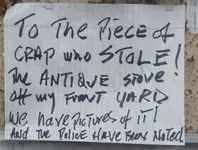 To THE PIECE OF
CRAP who STOLE!
The ANTIQUE stove
off my FRONT YARD
We have PICTURES OF IT!
AND THE POLICE HAVE BEEN NOTED